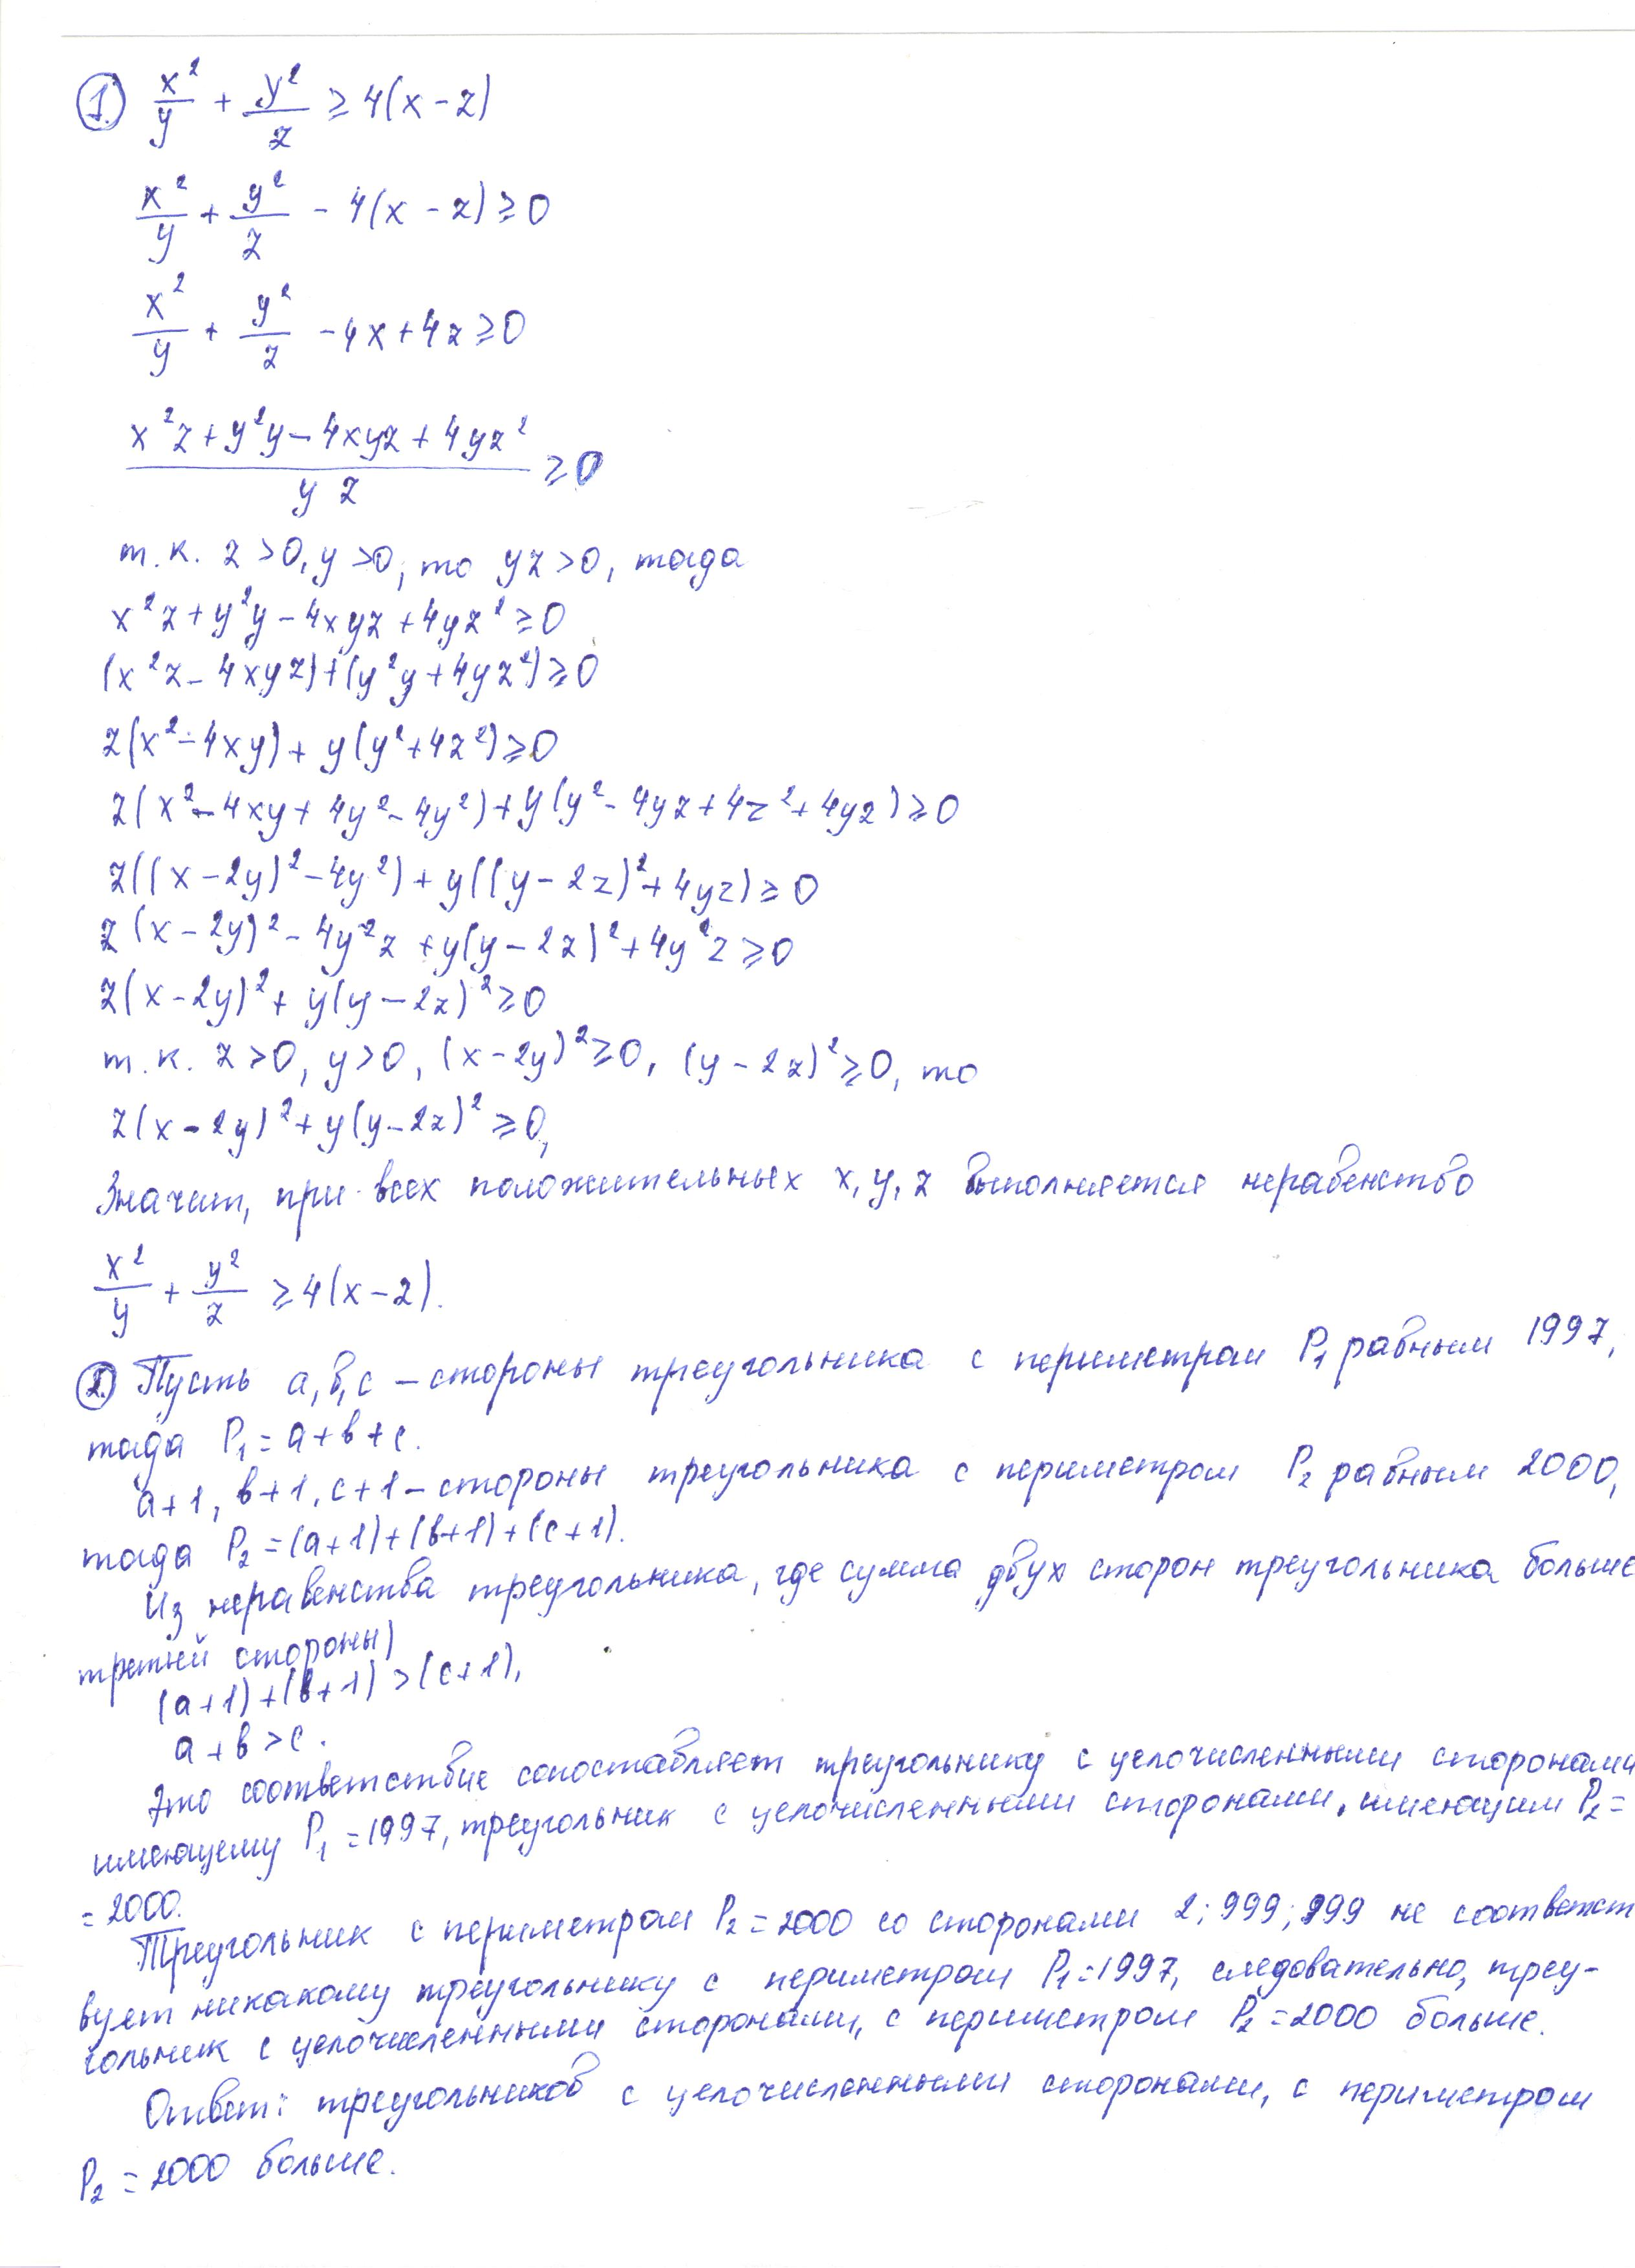 1. x²/y + y²/z ≥ 4(x - z)
x²/y + y²/z - 4(x - z) ≥ 0
x²/y + y²/z - 4x + 4z ≥ 0
(x²z + y²y - 4xyz + 4yz²)/(yz) ≥ 0
т.к. z > 0, y > 0, то yz > 0, тогда
x²z + y²y - 4xyz + 4yz² ≥ 0
(x²z - 4xyz) + (y²y + 4yz²) ≥ 0
z(x² - 4xy) + y(y² + 4z²) ≥ 0
z(x² - 4xy + 4y² - 4y²) + y(y² - 4yz + 4z² + 4yz) ≥ 0
z((x - 2y)² - 4y²) + y((y - 2z)² + 4yz) ≥ 0
z(x - 2y)² - 4y²z + y(y - 2z)² + 4y²z ≥ 0
z(x - 2y)² + y(y - 2z)² ≥ 0
т.к. z > 0, y > 0, (x - 2y)² ≥ 0, (y - 2z)² ≥ 0, то
z(x - 2y)² + y(y - 2z)² ≥ 0,
Значит, при всех положительных x, y, z выполняется неравенство
x²/y + y²/z ≥ 4(x - z).
2. Пусть а, в, с – стороны треугольника с периметром P₁ равным 1997,
тогда P₁ = а + в + с.
а + 1, в + 1, с + 1 – стороны треугольника с периметром P₂ равным 2000,
тогда P₂ = (а + 1) + (в + 1) + (с + 1).
Из неравенства треугольника, где сумма двух сторон треугольника больше
третьей стороны)
(а + 1) + (в + 1) > (с + 1),
а + в > с.
Это соответствие сопоставляет треугольнику с целочисленными сторонами
имеющему P₁ = 1997, треугольник с целочисленными сторонами, имеющим P₂ =
= 2000.
Треугольник с периметром P₂ = 2000 со сторонами 2; 999; 999 не соответст
вует никакому треугольнику с периметром P₁ = 1997, следовательно, треу-
гольник с целочисленными сторонами, с периметром P₂ = 2000 больше.
Ответ: треугольников с целочисленными сторонами, с периметром
P₂ = 2000 больше.